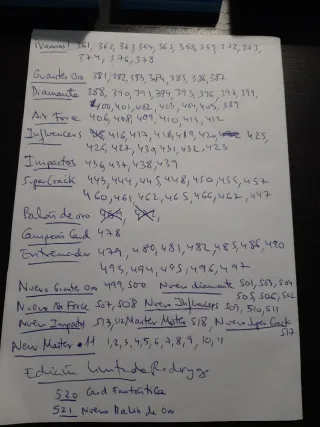 ¡Vamos! 361, 362, 363, 364, 365, 368, 369, 372, 373,
374, 376, 378
Guantes Oro 381, 382, 383, 384, 385, 386, 387
Diamante 388, 390, 393, 394, 395, 396, 397, 399,
400, 401, 402, 403, 404, 405, 389
Air Force 406, 408, 409, 410, 411, 412
Influencers 416, 417, 418, 419, 425,
426, 427, 430, 431, 432, 423
Impactos 436, 437, 438, 439
SuperCrack 443, 444, 445, 448, 450, 455, 457
460, 461, 462, 465, 466, 467, 447
Balón de oro
Campeón Card 478
Entrenador 479, 480, 481, 482, 485, 486, 490
493, 494, 495, 496, 497
Nuevo Guantes Oro 499, 500 Nuevo diamante 501, 503, 504
505, 506, 502
Nuevo Air Force 507, 508 Nuevo Influencers 509, 510, 511
Nuevo Impacto 513, 512 Master Master 518 Nuevo Super Crack
517
New Master 11 1, 2, 3, 4, 5, 6, 7, 8, 9, 10, 11
Edición Limitada Rodrygo
520 Card Fantástica
521 Nuevo Balón de Oro